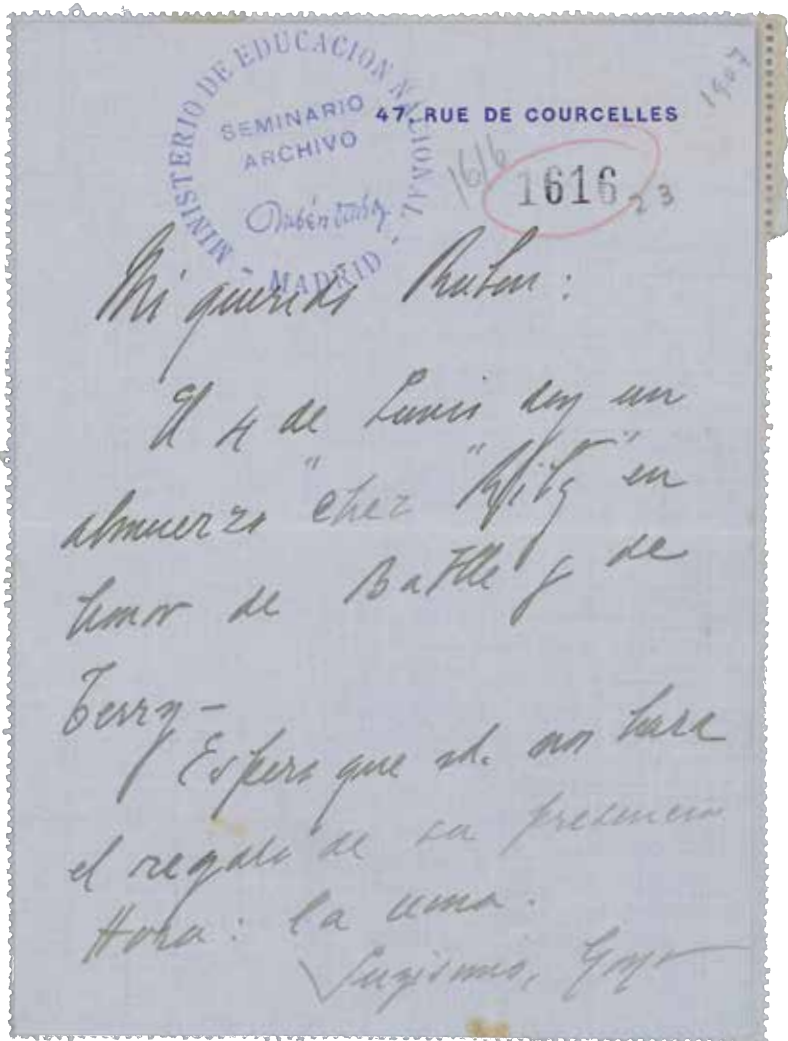 MINISTERIO DE EDUCACION NACIONAL - MADRID -
SEMINARIO
ARCHIVO
Rubén Darío
47, RUE DE COURCELLES
1907
1616
1616
23
Mi querido Ruben:
El 4 de Junio doy un
almuerzo "chez "Ritz" en
honor de Batlle y de
Terry-
Espero que Vd. nos hara
el regalo de su presencia
Hora: la una.
Suyisimo,